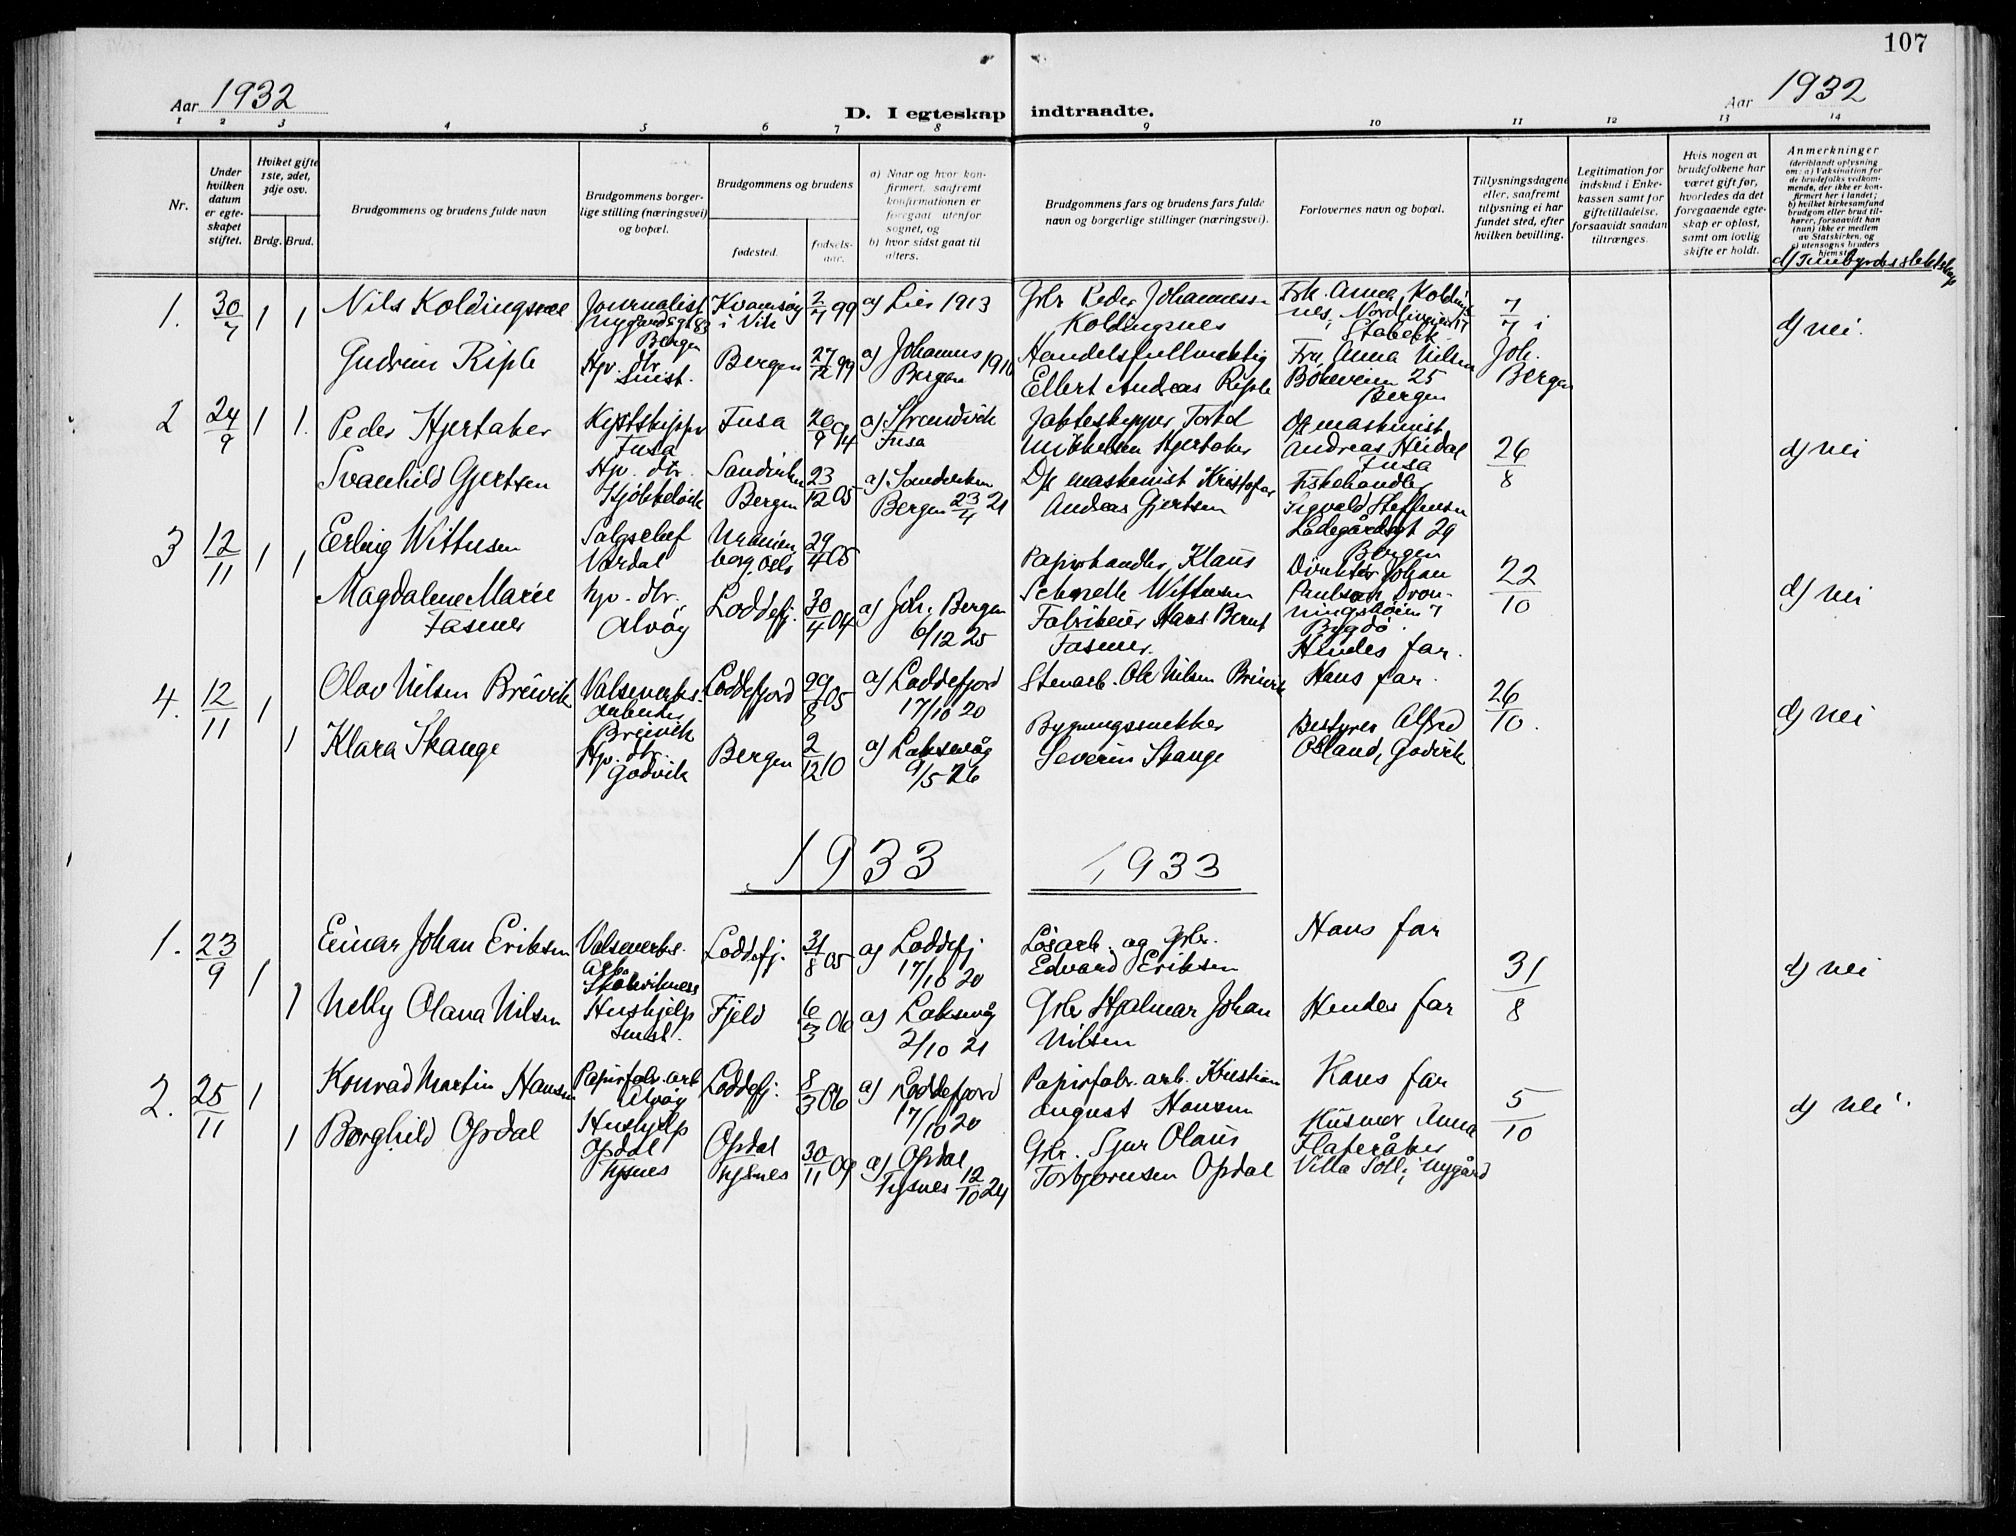 107
Aar 1932
D. I egteskap indtraadte.
Aar 1932
1 2 3 4 5 6 7 8 9 10 11 12 13 14
Nr.
Under hvilken datum er egteskapet stiftet.
Hviket gifte 1ste, 2det, 3dje osv.
Brdg. Brud.
Brudgommens og brudens fulde navn
Brudgommens borgerlige stilling (næringsvei) og bopæl.
Brudgommens og brudens
fødested.
fødselsaar.
a) Naar og hvor konfirmert, saafremt konfirmationen er foregaat utenfor sognet, og
b) hvor sidst gaat til alters.
Brudgommens fars og brudens fars fulde navn og borgerlige stillinger (næringsvei).
Forlovernes navn og bopæl.
Tillysningsdagene eller, saafremt tillysning ei har fundet sted, efter hvilken bevilling.
Legitimation for indskud i Enkekassen samt for giftetilladelse, forsaavidt saadan tiltrænges.
Hvis nogen av brudefolkene har været gift før, hvorledes da det foregaaende egteskap er opløst, samt om lovlig skifte er holdt.
Anmerkninger
(deriblandt oplysning om: a) Vaksination for de brudefolks vedkommende, der ikke er konfirmert her i landet; b) hvilket kirkesamfund brudgom eller brud tilhører, forsaavidt han (hun) ikke er medlem av Statskirken, og c) utensogns bruders hjemsted
1. 30/7 1 1 Nils Koldingsnes
Journalist Nygårdsgt 83 Bergen
Kvamsøy i Vik
2/7 99
a) Lier 1913
Gbr Peder Johannessen Koldingsnes
Frk. Anna Koldingsnes, Stabekk
7/7 i Joh. Bergen
d) nei.
Gudrun Riple
Hp. dtr. smst.
Bergen
27/12 99
a) Johannes Bergen 1916
Handelsfullmektig Ellert Andreas Riple
Fru Anna Nilsen Bøheveien 25 Bergen
2 24/9 1 1. Peder Hjertaker
Fusa
Fusa
20/9 94
a) Strandvik Fusa
Jakteskipper Tortel Mikkelsen Hjertaker
Og maskinist Andreas Heidal Fusa
26/8
d) nei
Svanhild Gjertsen
Hp. dtr. Hjökkelvik
Sandviken Bergen
23/12 05
a) Sandviken Bergen 23/4 21
D/s maskinist Kristofer Andreas Gjertsen
Fiskehandler Sigvald Steffensen Ladegårdsgt 29 Bergen
3 12/11 1 1 Erling Wittusen
Salgschef Vardal
Uranienborg, Oslo
29/4 05
Papirhandler Klaus Schnelle Wittusen
Direktör Johan Paulson Dronningshöien 7 Bygdö.
22/10
d) nei
Magdalene Marie Fasmer
hp. dtr. Alvöy
Loddefj.
30/4 04
a) Joh. Bergen 6/12 25
Fabrikeier Hans Bernt Fasmer.
Hendes far.
4. 12/11 1 Olav Nilsen Breivik
Valseverks-arbeider Breivik
Loddefjord
29/8 05
a) Loddefjord 17/10 20
Stenarb. Ole Nilsen Breivik
Hans far.
26/10.
d) nei
1 Klara Skange
Hp. dtr. Godvik
Bergen
2/12 10
a) Laksevåg 9/5 26
Bygningssnekker Severin Skange
Bestyrer Alfred Osland, Godvik
1933 1933
1. 23/9 1 Einar Johan Eriksen
Valseverks. arb.
Loddefj.
31/8 05
a) Loddefj 17/10 20
Lösarb. og gbr. Edvard Eriksen
Hans far
31/8
d) nei
1 Nelly Olava Nilsen
Hushjelp smst.
Fjeld
6/3 06
a) Laksevåg 2/10 21
Gbr Hjalmar Johan Nilsen
Hendes far
2. 25/11 1 Konrad Martin Hansen
Papirfabr. arb Alvöy
Loddefj.
8/3 06
a) Loddefjord 17/10 20
Papirfabr. arb. Kristian August Hansen
Hans far
5/10
d) nei.
1 Borghild Opdal
Hushjelp Opdal Tysnes
Opdal Tysnes
30/11 09
a) Opdal Tysnes 12/10 24
Gbr. Sjur Olaus Torbjørnsen Opdal
Husmor Anna Flateråker Villa Soli, Nygård